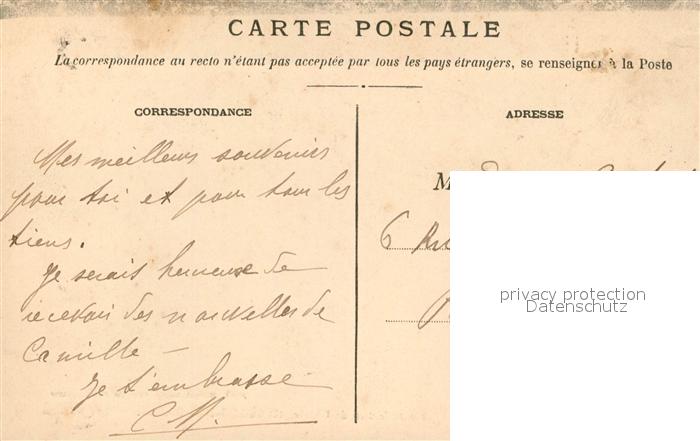 CARTE POSTALE
La correspondance au recto n'étant pas acceptée par tous les pays étrangers, se renseigner à la Poste
CORRESPONDANCE
Mes meilleurs souvenirs
pour toi et pour tous les
tiens.
Je serais heureuse de
recevoir des nouvelles de
Camille —
Je t'embrasse
CM.
ADRESSE
M
6 Rue
privacy protection
Datenschutz